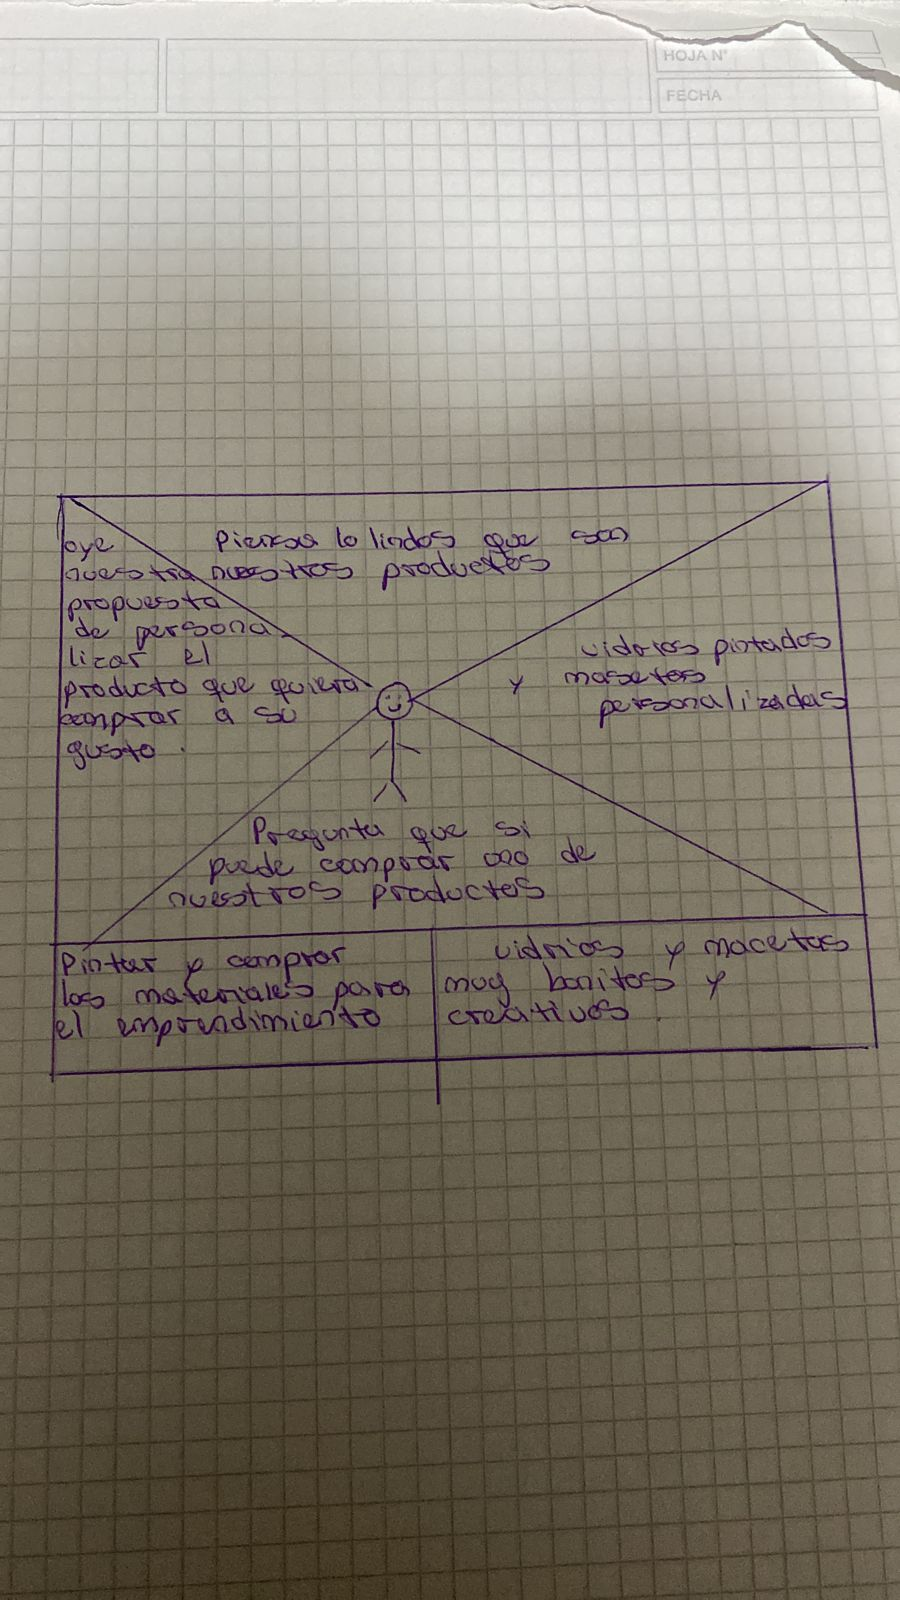 HOJA N°
FECHA
Piensa lo lindos que son
nuestros productos
oye
nuestra
propuesta
de persona
lizar el
producto que quiera
comprar a su
gusto.
vidrios pintados
y masetas
personalizadas
Pregunta que si
puede comprar uno de
nuestros productos
Pintar y comprar
los materiales para
el emprendimiento
vidrios y macetas
muy bonitos y
creativos.